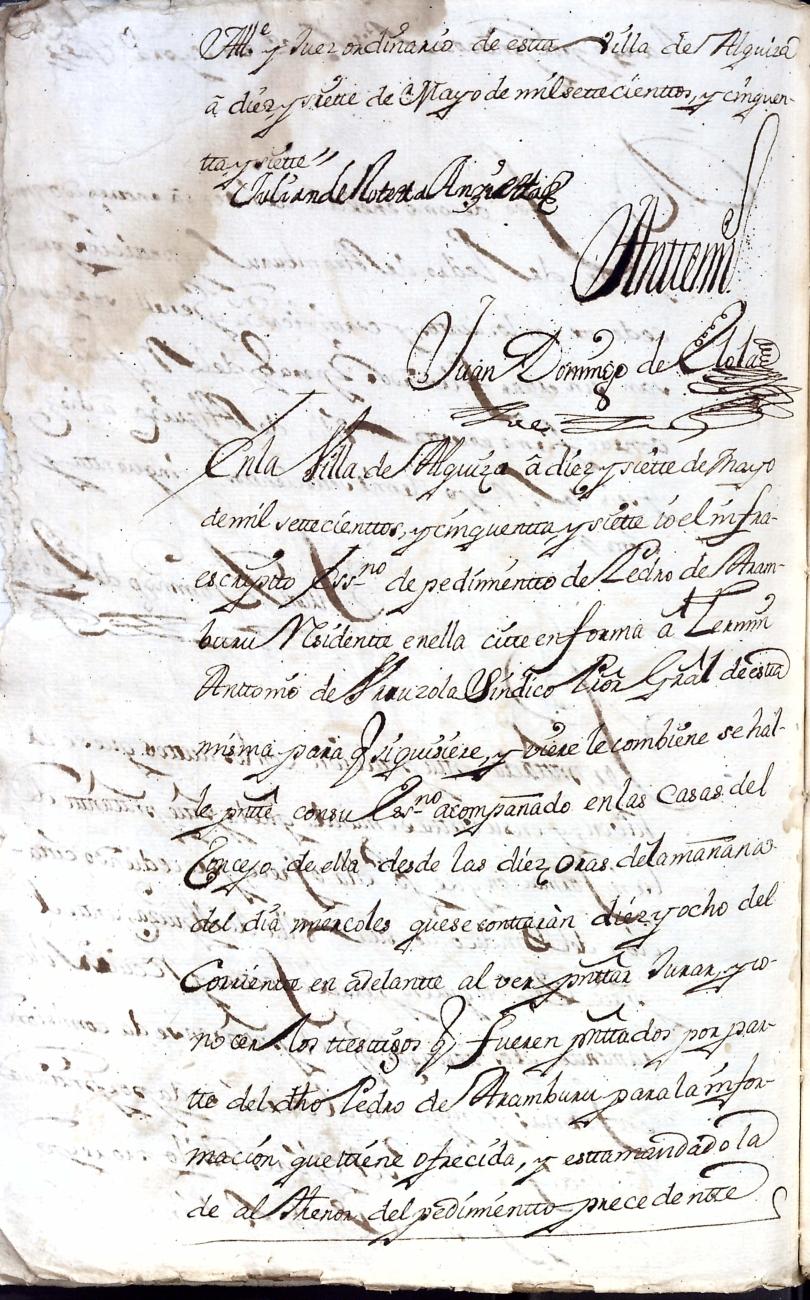 Allᵉ y Juez ordinario de estta Villa de Alquiza
à diez y siette de Mayo de mil settecienttos, y cinquen-
tta y siette
Julian de
Anttemi
Juan Domingo de
En la Villa de Alquiza à diez y siette de Mayo
de mil settecienttos, y cinquentta y siette io el infra-
escripto Essⁿᵒ de pedimientto de Pedro de Aram-
buru Residentte en ella citte en forma a Fermin
Anttonio de Síndico Pròr Grál de estta
misma para q si quisiere, y viere le combiene se hal-
le prᵗᵉ con su Essⁿᵒ acompañado en las Casas del
Concejo de ella desde las diez oras de la mañana
del dia miercoles que se conttaràn diez y ocho del
Corrientte en adelantte al ver prᵗᵗar Jurar, y co-
nocer los ttesttigos q fueren prᵗᵗados por par-
tte del dho Pedro de Aramburu para la infor-
mación que ttiene ofrecida, y estta mandado la
de al thenor del pedimientto precedentte